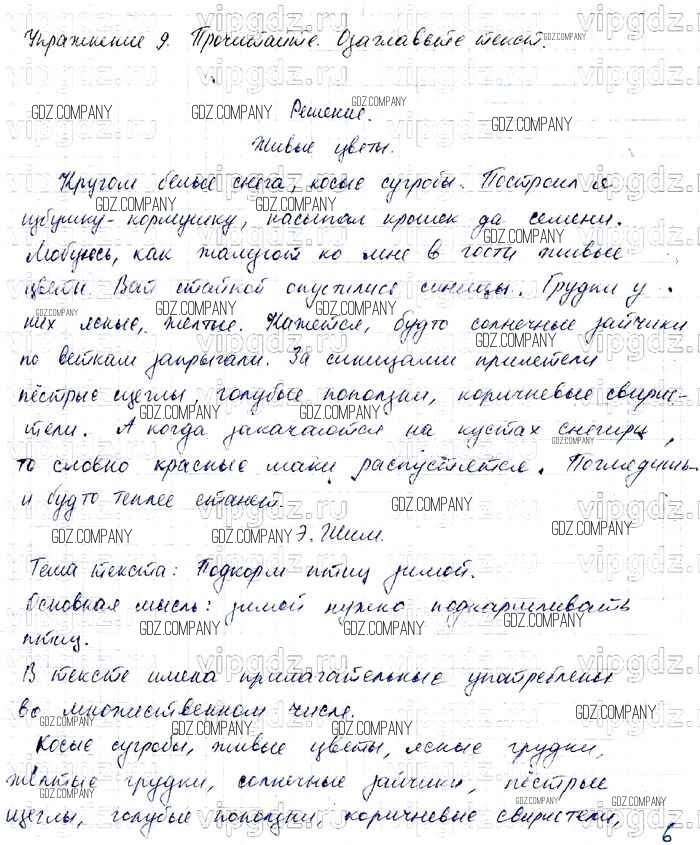 Упражнение 9. Прочитайте. Озаглавьте текст.
Решение.
Живые цветы.
Кругом белые снега, косые сугробы. Построил я
избушку-кормушку, насыпал крошек да семени.
Любуюсь, как жалуют ко мне в гости живые
цветы. Вот стайкой опустились синицы. Грудки у
них ясные, жёлтые. Кажется, будто солнечные зайчики
по веткам запрыгали. За синицами прилетели
пёстрые щеглы, голубые поползни, коричневые свирис-
тели. А когда закачаются на кустах снегири,
то словно красные маки распустятся. Поглядишь
и будто теплее станет.
Э. Шим.
Тема текста: Подкорм птиц зимой.
Основная мысль: зимой нужно подкармливать
птиц.
В тексте имена прилагательные употреблены
во множественном числе.
Косые сугробы, живые цветы, ясные грудки,
жёлтые грудки, солнечные зайчики, пёстрые
щеглы, голубые поползни, коричневые свиристели,
6